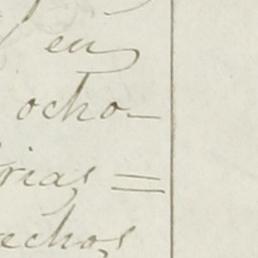 en
ocho-
rias =
echos